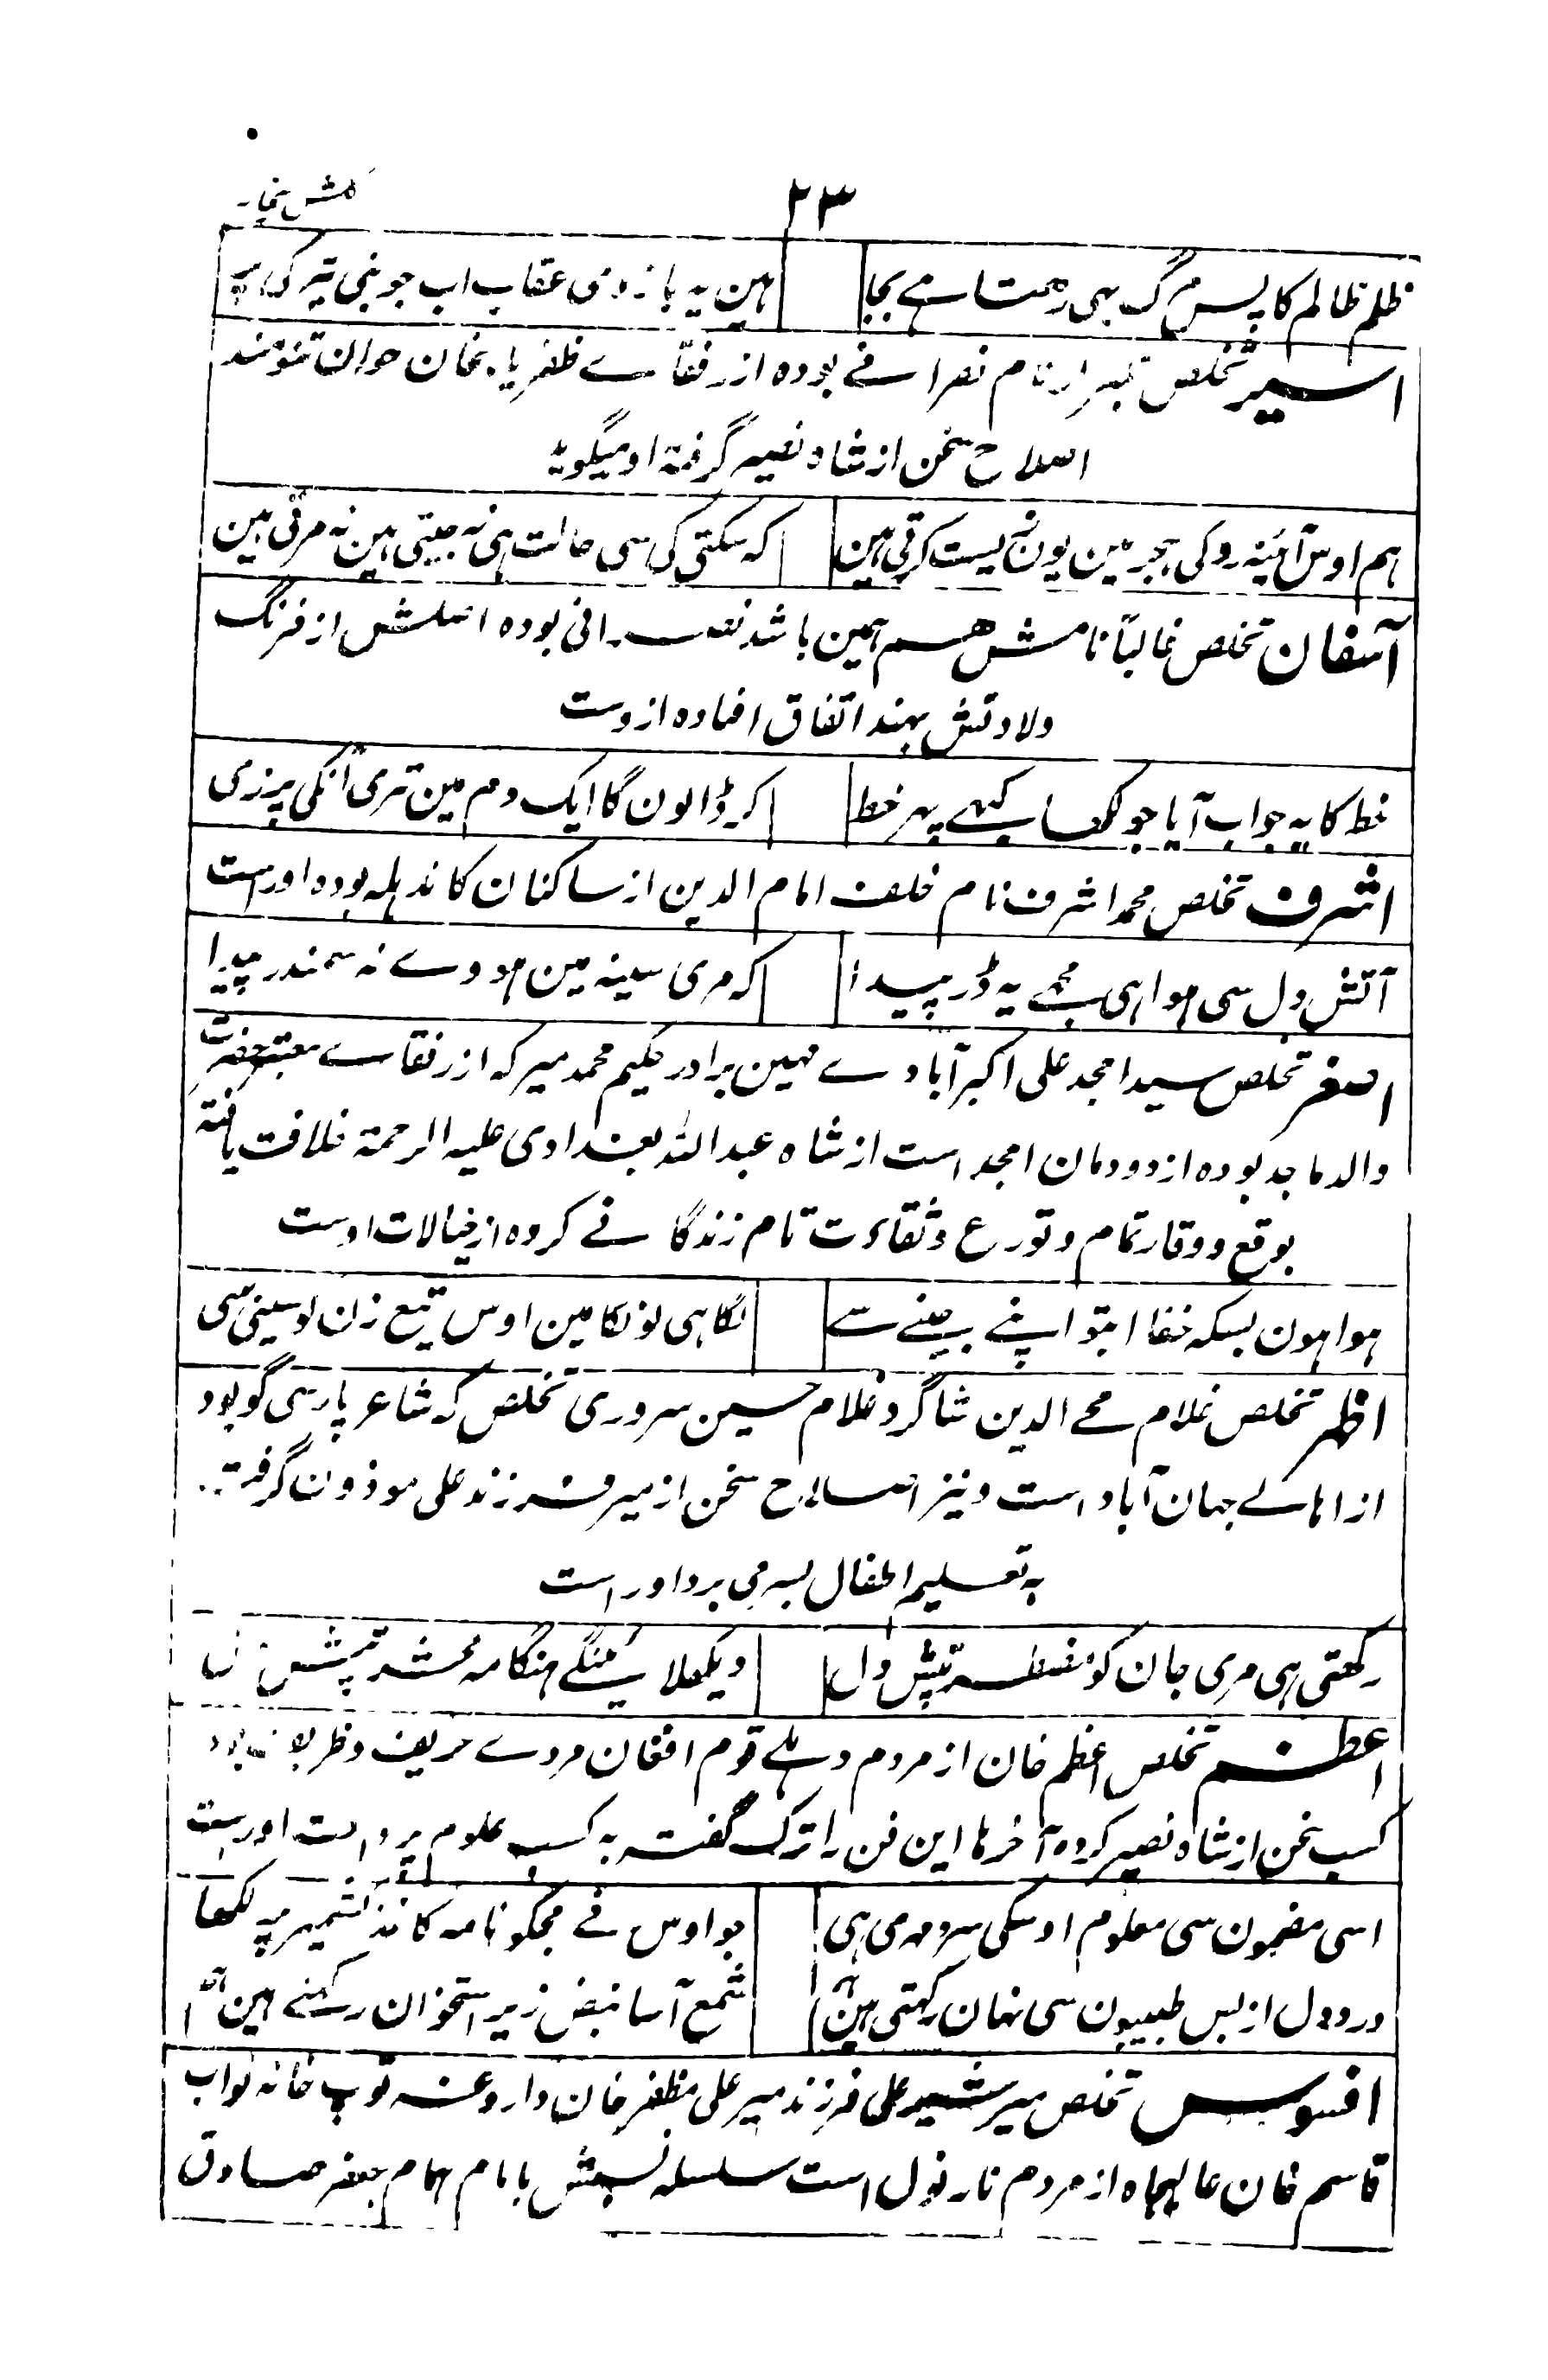 ۲۳
گلشن بیخار
ظلم ظالم کا پس مرگ بہی رہتا ہے بجا ہین یہ بازوی عقاب اب جو بنی تیر کی پر
اسیر تخلص نام نصرانے بودہ از رفقاے ظفریابخان جوان تنومند
اصلاح سخن از شاہ نصیر گرفتہ او میگوید
ہم اوس آئینہ رو کی ہجر مین یون زیست کرتی ہین کہ سکتی کی سی حالت ہی نہ جیتی ہین نہ مرتی ہین
آسفان تخلص غالباً نامش ہم ہمین باشد نصرانی بودہ اصلش از فرنگ
ولادتش بہند اتفاق افتادہ ازوست
خط کا یہ جواب آیا جو لکھا کبہے پہر خط کر ڈالون گا ایک دم مین تری آنکی پرزی
اشرف تخلص محمد اشرف نام خلف امام الدین از ساکنان کاندہلہ بودہ اوراست
آتش دل سی ہوا ہی مجہے یہ ڈر پیدا کہ مری سینہ مین ہووے نہ سمندر پیدا
اصغر تخلص سید امجد علی اکبرآبادے مہین برادر حکیم محمد میر کہ از رفقاے معتبر حضرت
والد ماجد بودہ از دودمان امجد است از شاہ عبداللہ بغدادی علیہ الرحمۃ خلافت یافتہ
بوقع و وقار تمام و تورع و ثقاءت تام زندگانے کردہ از خیالات اوست
ہوا ہون بسکہ خفا ابتو اپنے جینے سے لگا ہی لونگا مین اوس تیغ زن کو سینی سی
اظہر تخلص غلام محے الدین شاگرد غلام حسین سروری تخلص کہ شاعر پارسی گو بود
از اہالے جہان آباد است و نیز اصلاح سخن از میر فرزند علی موزون گرفتہ
بہ تعلیم اطفال بسر می برد اوراست
رکھتی ہی مری جان کو مضطر تپش دل دیکھلائینگے ہنگامہ محشر تپش دل
اعظم تخلص اعظم خان از مردم دہلے قوم افغان مردے حریف و ظریف بود
کسب سخن از شاہ نصیر کردہ آخرہا این فن را ترک گفتہ بہ کسب علوم پرداخت اوراست
اسی مضمون سی معلوم اوسکی سرد مہری ہی جو اوس نے مجکو نامہ کاغذ کشمیر پہ لکھا
درد دل از بس طبیبون سی نہان رکہتی ہین ہم شمع آسا نبض زیر استخوان رکہتے ہین ہم
افسوس تخلص میر شیر علی فرزند میر علی مظفر خان داروغہ توپ خانہ نواب
قاسم خان عالیجاہ از مردم نارنول است سلسلہ نسبش بامام ہمام جعفر صادق